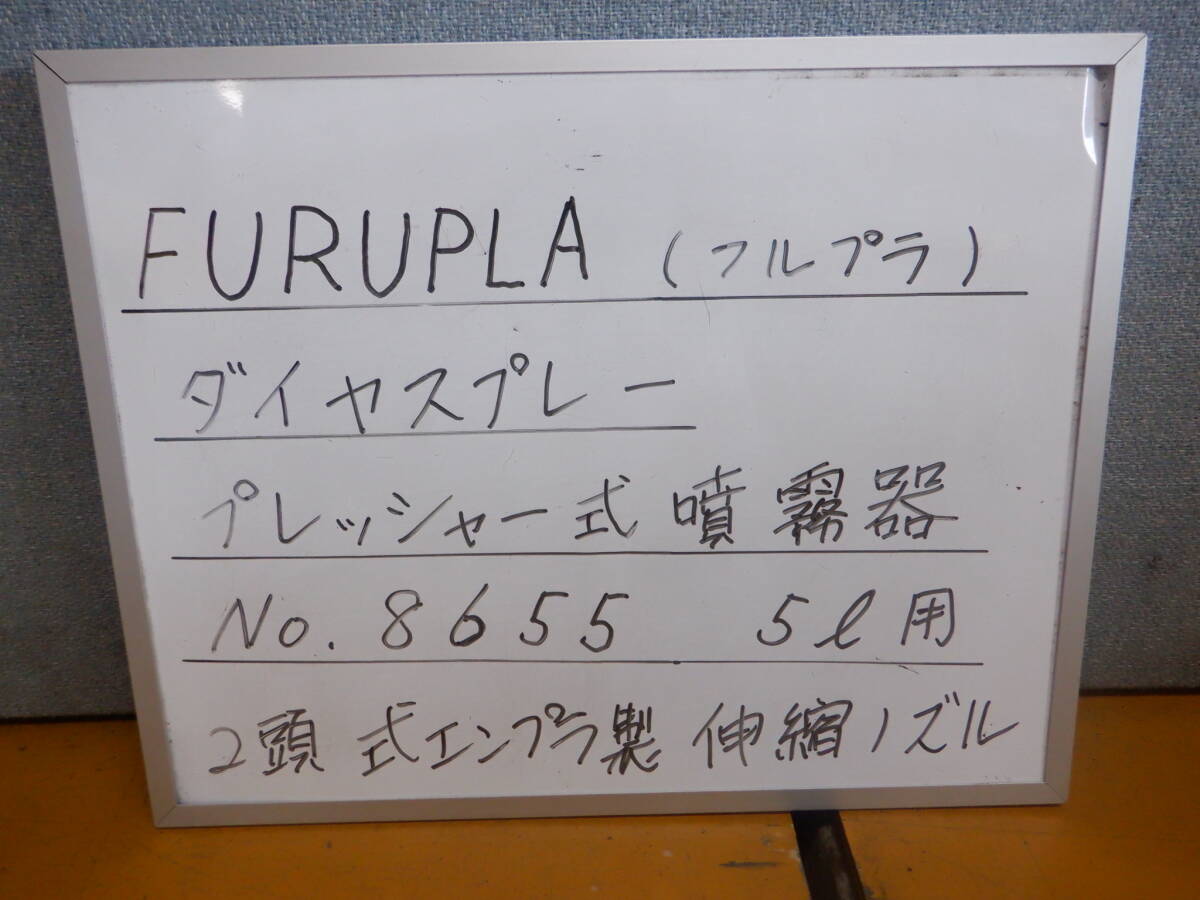 FURUPLA (フルプラ)
ダイヤスプレー
プレッシャー式噴霧器
No.8655 5ℓ用
2頭式エンプラ製 伸縮ノズル